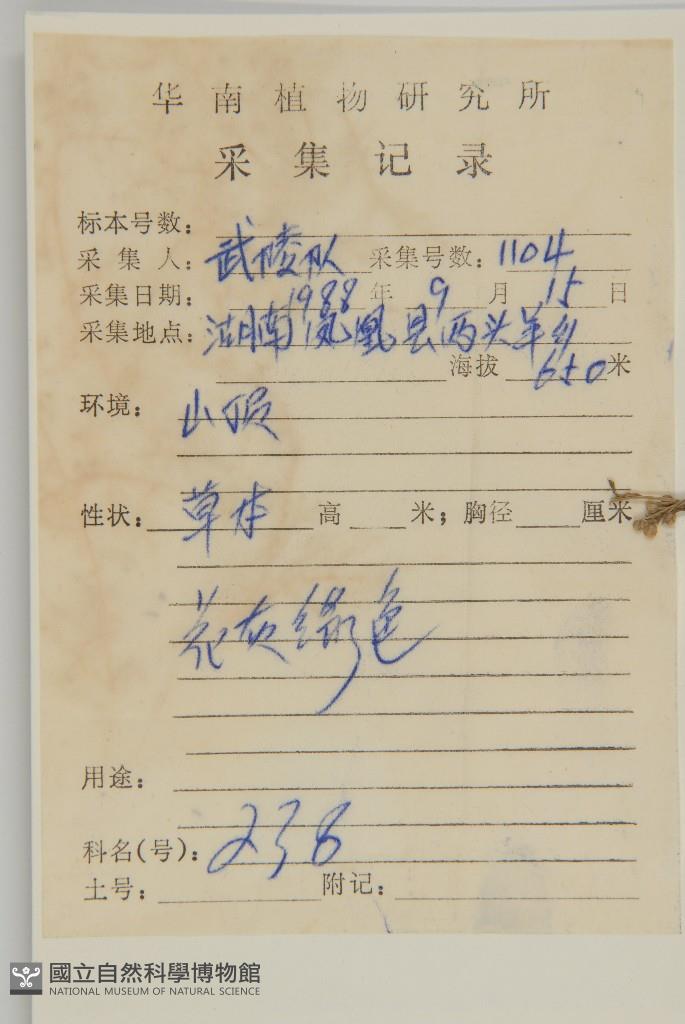 华南植物研究所
采集记录
标本号数：
采集人：武陵队 采集号数：1104
采集日期：1988年9月15日
采集地点：湖南凤凰县两头羊乡
海拔650米
环境：山顶
性状：草本 高 米；胸径 厘米
花灰绿色
用途：
科名(号)：238
土号： 附记：
國立自然科學博物館
NATIONAL MUSEUM OF NATURAL SCIENCE